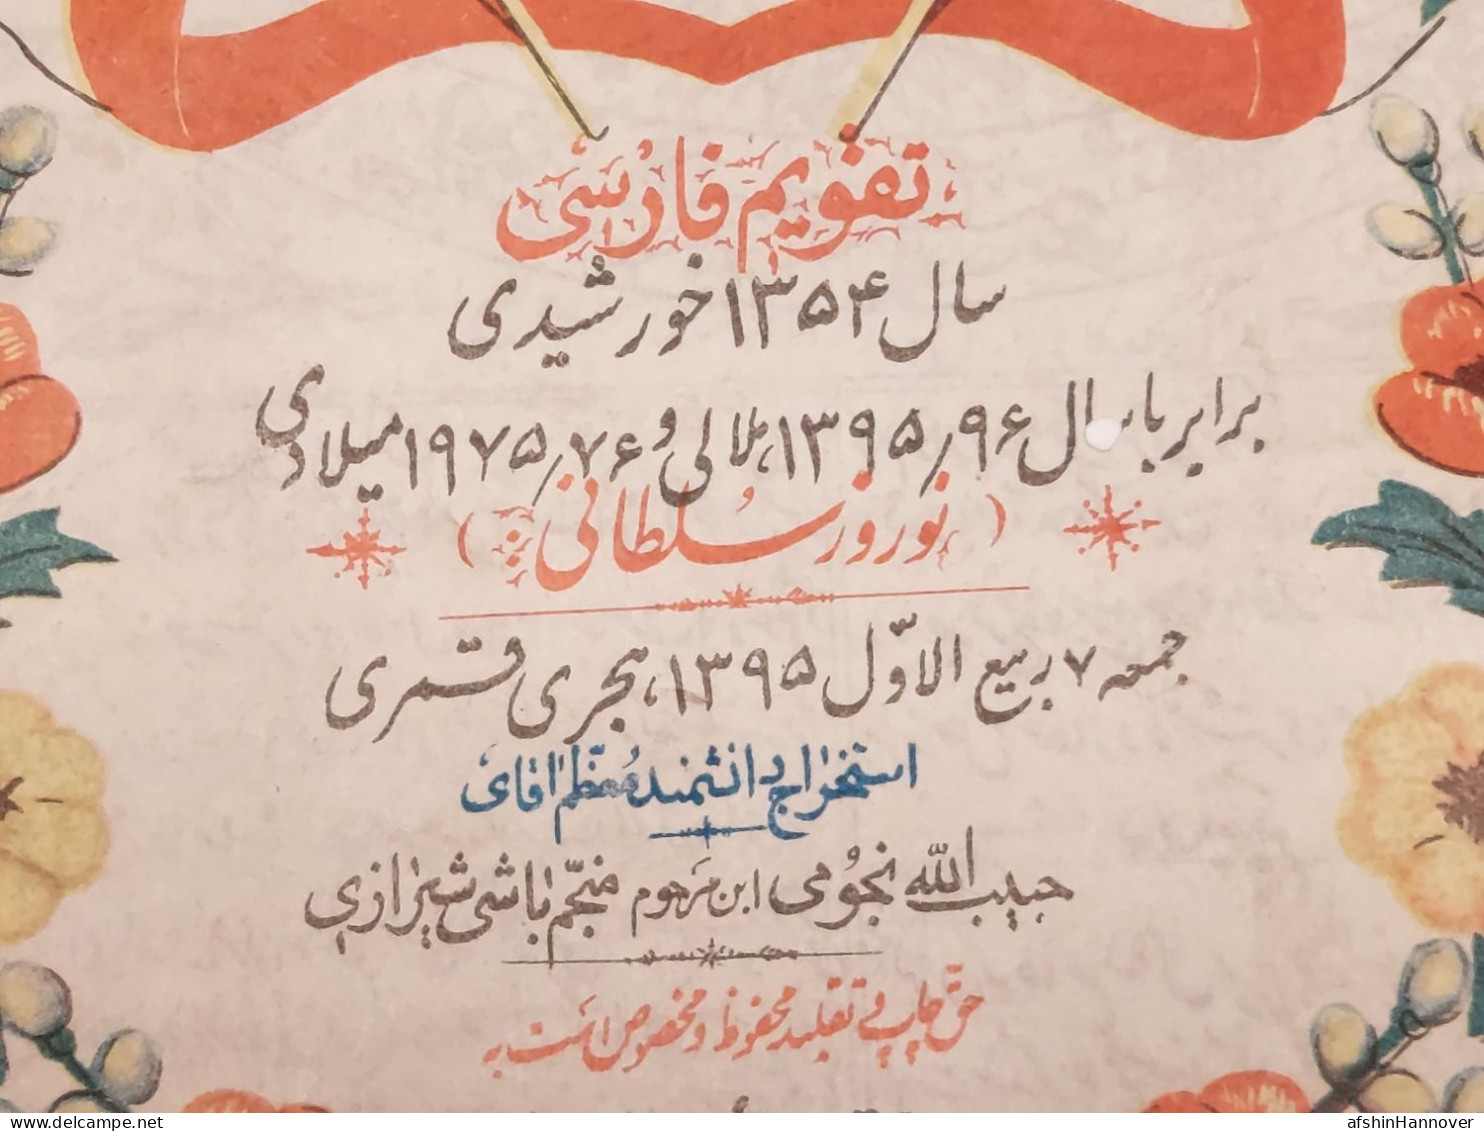 تقویم فارسی
سال ۱۳۵۴ خورشیدی
برابر با سال ۱۳۹۵٫۹۶ هلالی و ۱۹۷۵٫۷۶ میلادی
( نوروز سلطانی )
جمعه ۷ ربیع الاوّل ۱۳۹۵ هجری قمری
استخراج دانشمند معظّم اقای
حبیب الله نجومی ابن مرحوم منجّم باشی شیرازی
حقّ چاپ و تقلید محفوظ و مخصوص است به
afshinHannover